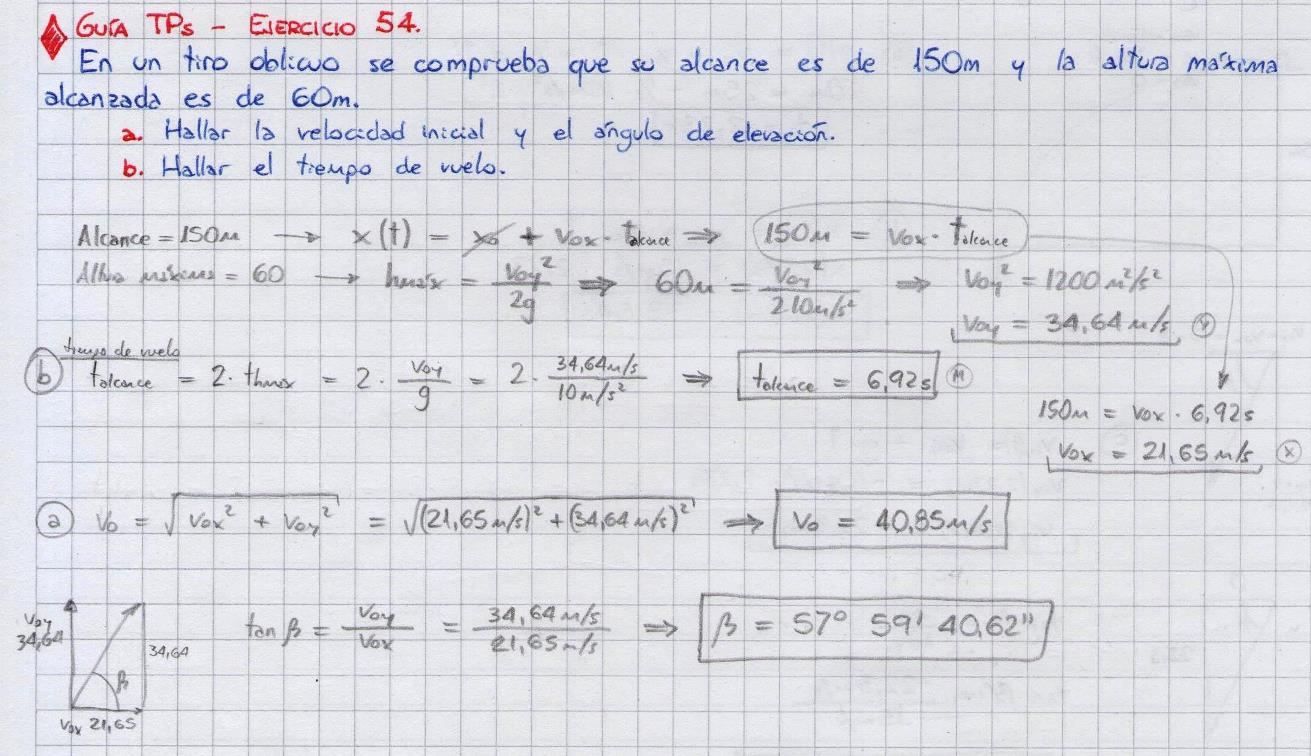 GUÍA TPs - EJERCICIO 54.
En un tiro oblicuo se comprueba que su alcance es de 150m y la altura máxima
alcanzada es de 60m.
a. Hallar la velocidad inicial y el ángulo de elevación.
b. Hallar el tiempo de vuelo.
Alcance = 150m → x(t) = x₀ + Vox · talcance ⇒ 150m = Vox · talcance
Altura máxima = 60 → hmáx = Voy²/2g ⇒ 60m = Voy²/2·10m/s² ⇒ Voy² = 1200 m²/s²
Voy = 34,64 m/s Y
tiempo de vuelo
b talcance = 2 · thmax = 2 · Voy/g = 2 · 34,64m/s/10m/s² ⇒ talcance = 6,92s M
150m = Vox · 6,92s
Vox = 21,65 m/s X
a Vo = √(Vox² + Voy²) = √((21,65 m/s)² + (34,64 m/s)²) ⇒ Vo = 40,85 m/s
tan β = Voy/Vox = 34,64 m/s/21,65 m/s ⇒ β = 57° 59' 40,62"
Voy
34,64
34,64
β
Vox 21,65